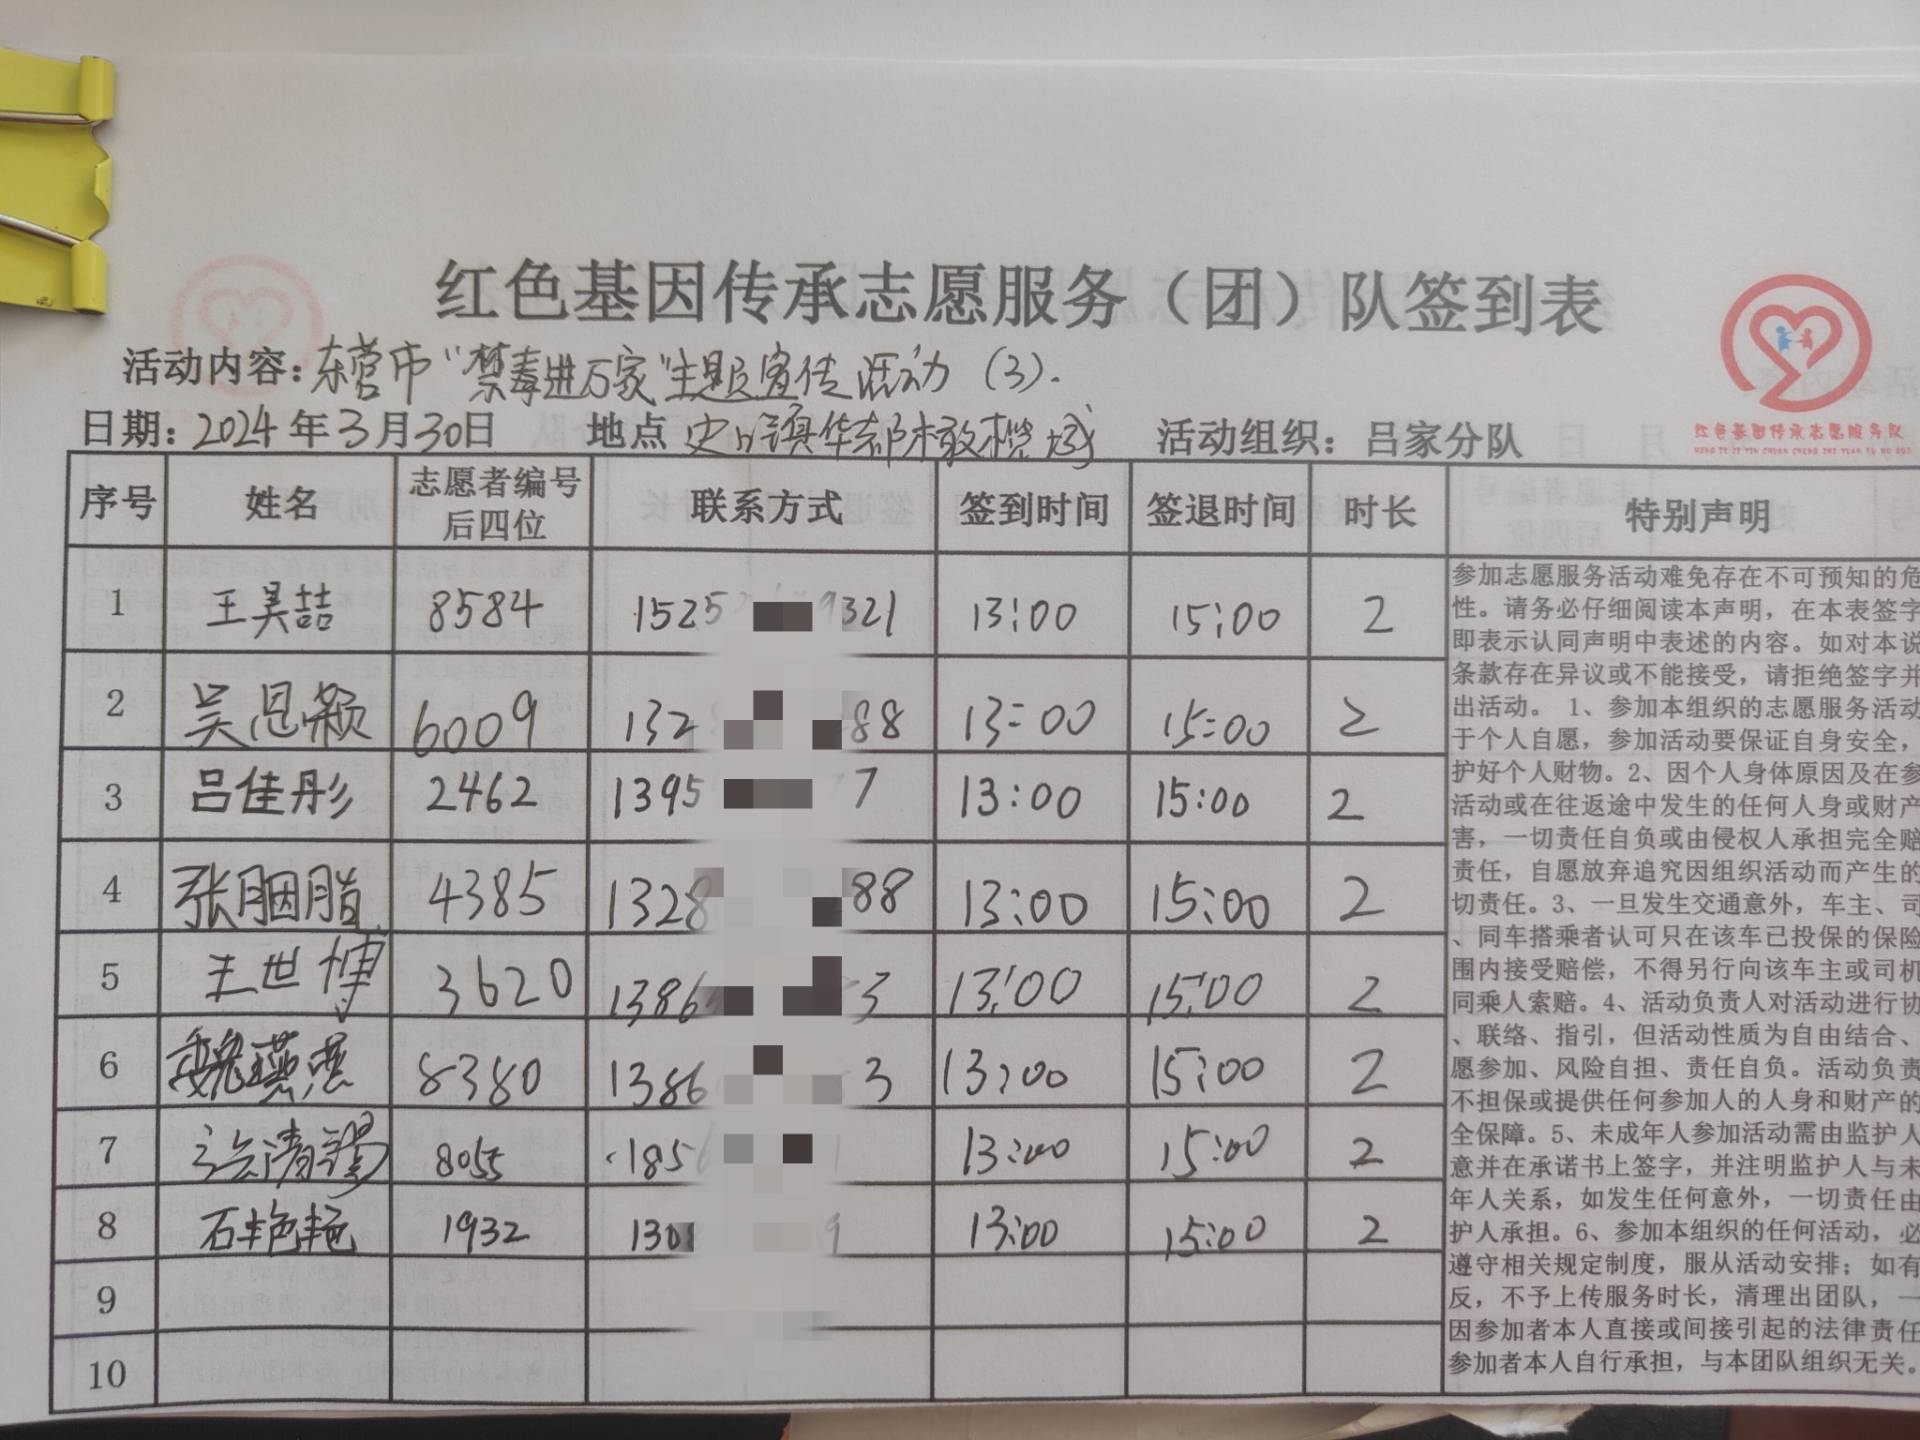 红色基因传承志愿服务（团）队签到表
活动内容：东营市“禁毒进万家”主题宣传活动（3）.
日期：2024年3月30日 地点 史口镇华都橄榄城 活动组织：吕家分队
红色基因传承志愿服务队
序号 姓名 志愿者编号后四位 联系方式 签到时间 签退时间 时长 特别声明
1 王昊喆 8584 1525 9321 13:00 15:00 2
2 吴恩颖 6009 132 88 13:00 15:00 2
3 吕佳彤 2462 1395 7 13:00 15:00 2
4 张胭脂 4385 1328 88 13:00 15:00 2
5 王世博 3620 1386 3 13:00 15:00 2
6 魏燕燕 8380 1386 3 13:00 15:00 2
7 8055 1856 13:00 15:00 2
8 石艳艳 1932 1308 9 13:00 15:00 2
9
10
参加志愿服务活动难免存在不可预知的危
性。请务必仔细阅读本声明，在本表签字
即表示认同声明中表述的内容。如对本说
条款存在异议或不能接受，请拒绝签字并
出活动。 1、参加本组织的志愿服务活动
于个人自愿，参加活动要保证自身安全，
护好个人财物。2、因个人身体原因及在参
活动或在往返途中发生的任何人身或财产
害，一切责任自负或由侵权人承担完全赔
责任，自愿放弃追究因组织活动而产生的
切责任。3、一旦发生交通意外，车主、司
、同车搭乘者认可只在该车已投保的保险
围内接受赔偿，不得另行向该车主或司机
同乘人索赔。4、活动负责人对活动进行协
、联络、指引，但活动性质为自由结合、
愿参加、风险自担、责任自负。活动负责
不担保或提供任何参加人的人身和财产的
全保障。5、未成年人参加活动需由监护人
意并在承诺书上签字，并注明监护人与未
年人关系，如发生任何意外，一切责任由
护人承担。6、参加本组织的任何活动，必
遵守相关规定制度，服从活动安排；如有
反，不予上传服务时长，清理出团队，一
因参加者本人直接或间接引起的法律责任
参加者本人自行承担，与本团队组织无关。